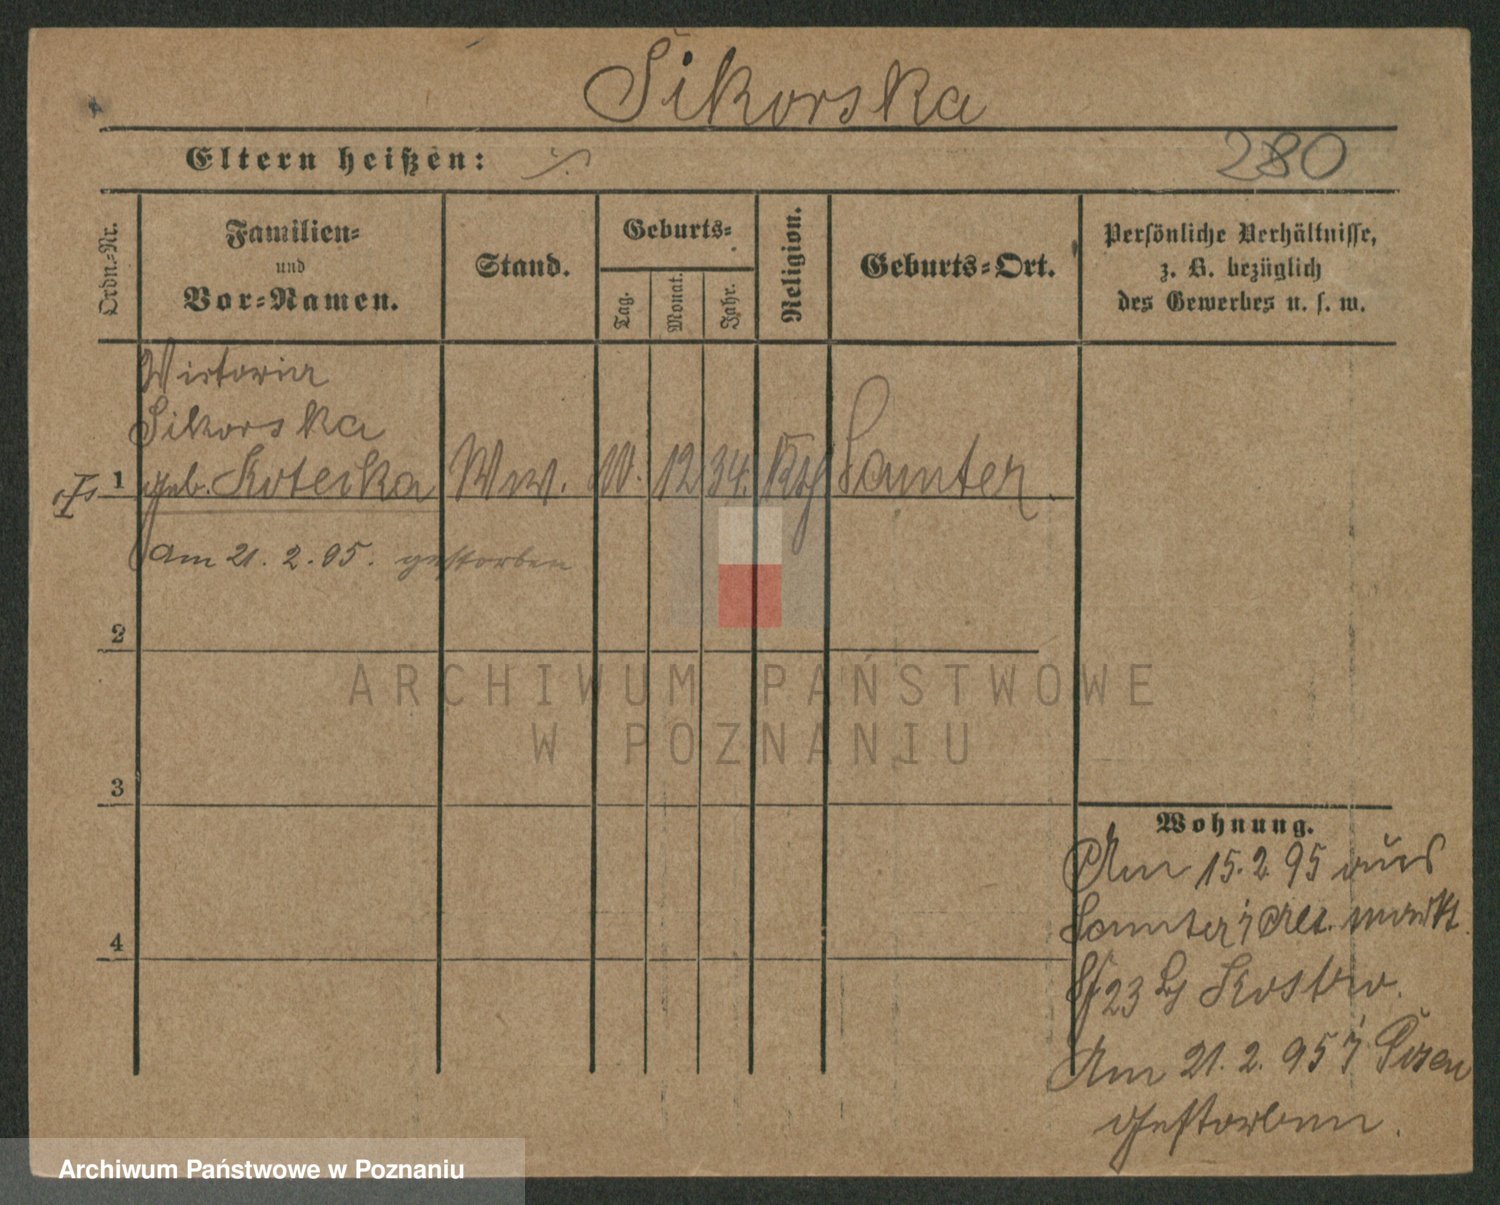 Sikorska
Eltern heißen: ·/.
280
Ordn.-Nr.
Familien-
und
Vor-Namen.
Stand.
Geburts-
Tag.
Monat.
Jahr.
Religion.
Geburts-Ort.
Persönliche Verhältnisse,
z. B. bezüglich
des Gewerbes u. s. w.
Victoria
Sikorska
1 geb. Koteska Ww. 12 34. Kth Samter.
am 21. 2. 95. gestorben
2
ARCHIWUM PAŃSTWOWE
W POZNANIU
3
Wohnung.
Am 15. 2. 95 aus
Samter / Alt. markt
23 Kostro.
4
Am 21. 2. 95 / Posen
gestorben.
Archiwum Państwowe w Poznaniu